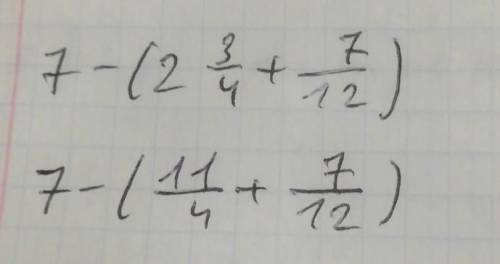 7 - (2 3/4 + 7/12)
7 - (11/4 + 7/12)